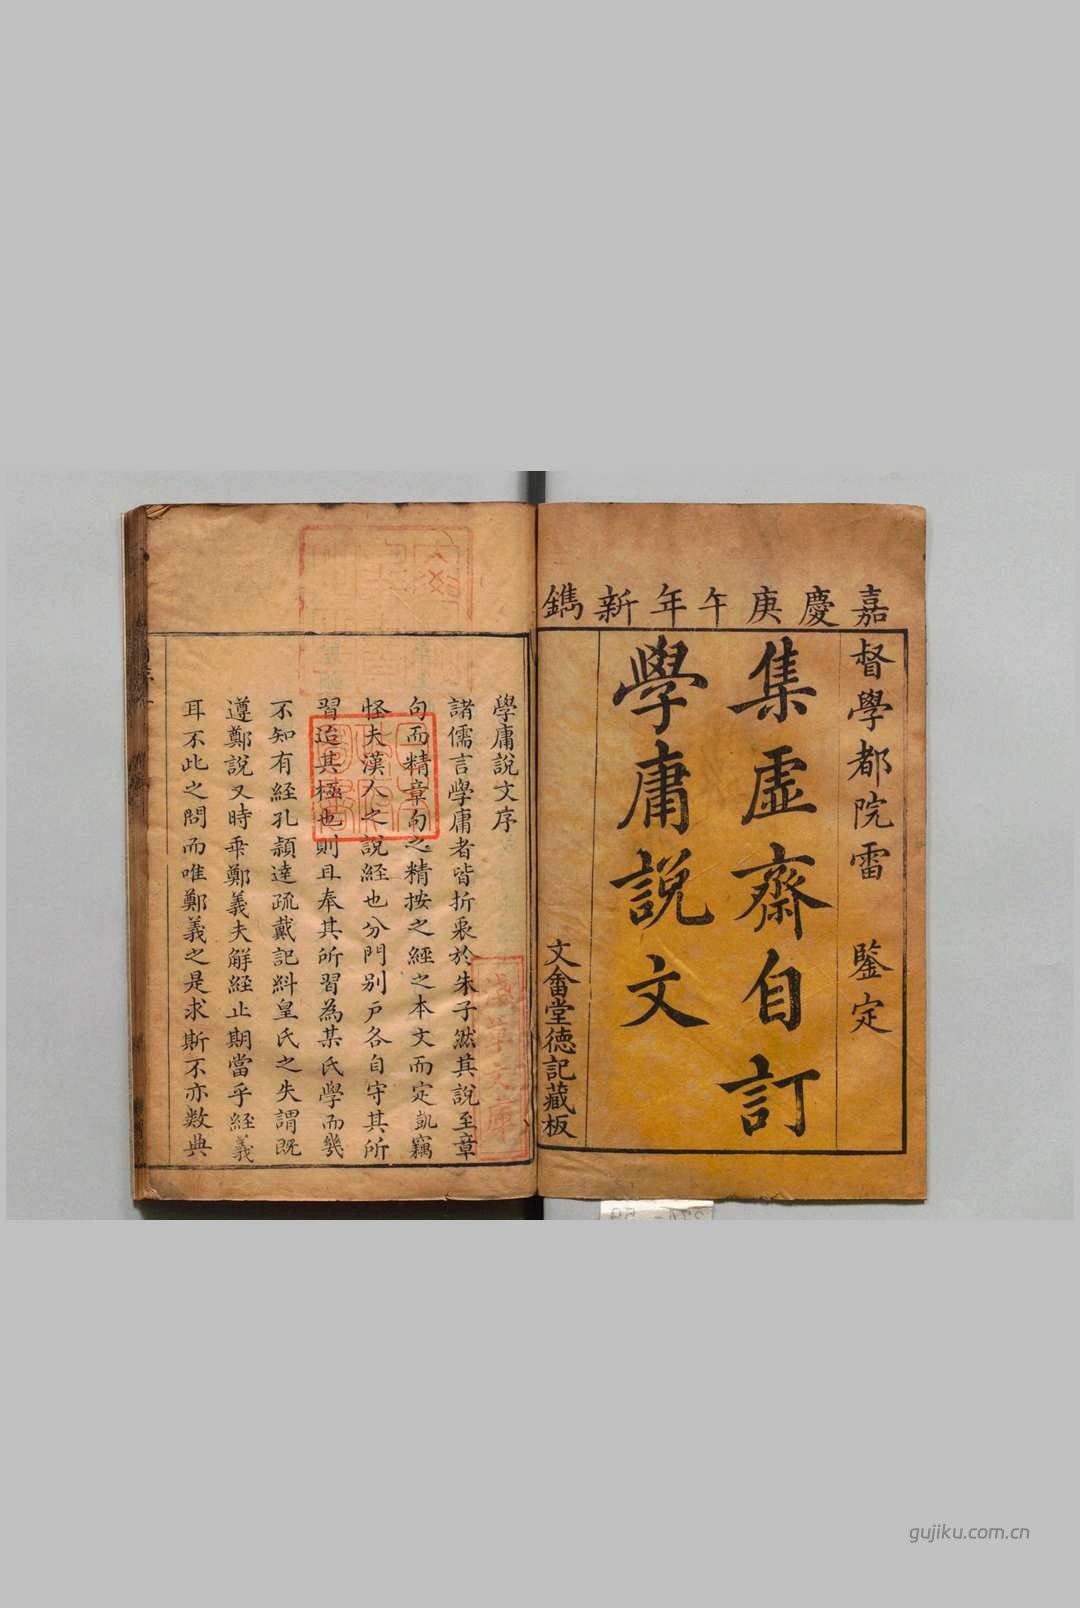 嘉慶庚午年新鐫
督學都院雷 鑒定
集虛齋自訂
學庸說文
文畬堂德記藏板
學庸說文序
諸儒言學庸者皆折衷於朱子然其說至章
句而精章句之精按之經之本文而定凱竊
怪夫漢人之說經也分門別戶各自守其所
習迨其極也則且奉其所習為某氏學而幾
不知有經孔頴達疏戴記糾皇氏之失謂既
遵鄭說又時乖鄭義夫解經止期當乎經義
耳不此之問而唯鄭義之是求斯不亦數典
淺草文庫
gujiku.com.cn